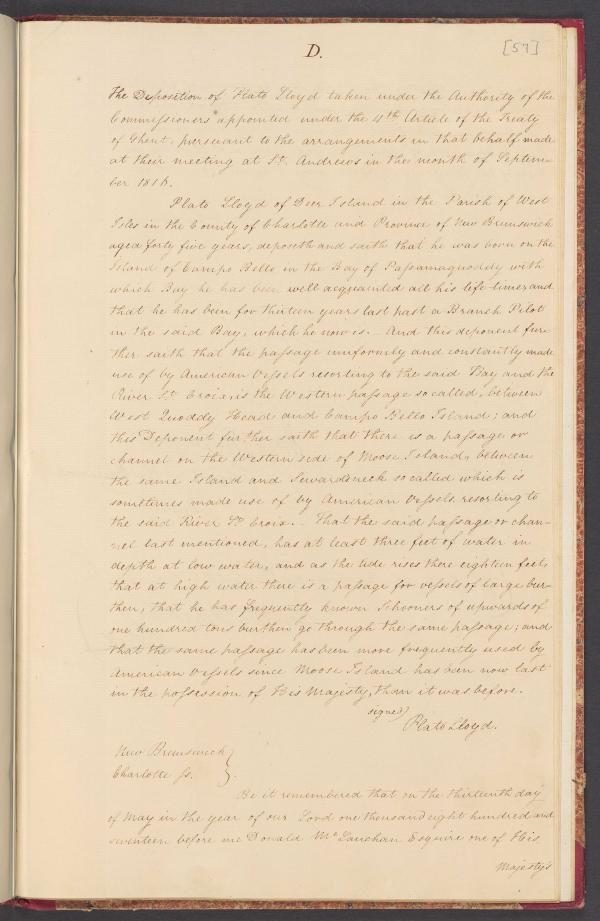 D.
[57]
The Deposition of Plato Lloyd taken under the Authority of the
Commissioners appointed under the 4th Article of the Treaty
of Ghent, pursuant to the arrangements in that behalf made
at their meeting at St. Andrews in the month of Septem-
ber 1816.
Plato Lloyd of Deer Island in the Parish of West
Isles in the County of Charlotte and Province of New Brunswick
aged forty five years, deposeth and saith that he was born on the
Island of Campo Bello in the Bay of Passamaquoddy with
which Bay he has been well acquainted all his life-time, and
that he has been for thirteen years last past a Branch Pilot
in the said Bay, which he now is. – And this deponent fur-
ther saith that the passage uniformly and constantly made
use of by American Vessels resorting to the said Bay and the
River St. Croix, is the Western passage so called, between
West Quoddy Head and Campo Bello Island; and
this Deponent further saith that there is a passage or
channel on the Western side of Moose Island, between
the same Island and Sewardsneck so called which is
sometimes made use of by American Vessels resorting to
the said River St. Croix. – That the said passage or chan-
nel last mentioned, has at least three feet of water in
depth at low water, and as the tide rises there eighteen feet,
that at high water there is a passage for vessels of large bur-
then, that he has frequently known Schooners of upwards of
one hundred tons burthen go through the same passage; and
that the same passage has been more frequently used by
American Vessels since Moose Island has been now last
in the possession of His Majesty, than it was before.
signed)
Plato Lloyd.
New Brunswick }
Charlotte Ss. }
Be it remembered that on the thirteenth day
of May in the year of our Lord one thousand eight hundred and
seventeen before me Donald McLauchan Esquire one of His
Majesty's